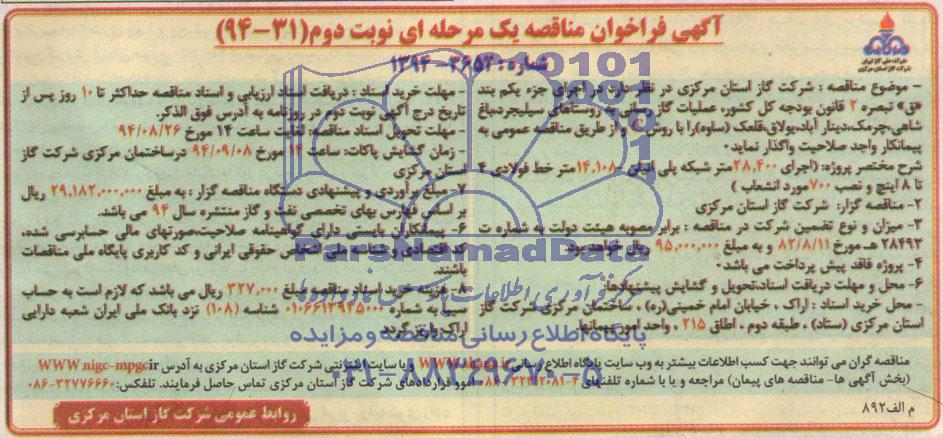 آگهی فراخوان مناقصه یک مرحله ای نوبت دوم(۳۱-۹۴)
شماره: ۳۶۵۲-۱۳۹۴
شرکت ملی گاز ایران
شرکت گاز استان مرکزی
- موضوع مناقصه : شرکت گاز استان مرکزی در نظر دارد در اجرای جزء یکم بند
«ق» تبصره ۲ قانون بودجه کل کشور، عملیات گاز رسانی به روستاهای سیلیجرد،باغ
شاهی،چرمک،دینار آباد،یولاق،قلعک (ساوه)را با روش و از طریق مناقصه عمومی به
پیمانکار واجد صلاحیت واگذار نماید.
شرح مختصر پروژه:(اجرای ۲۸,۴۰۰متر شبکه پلی اتیلن ۱۴,۱۰۸متر خط فولادی ۴
تا ۸ اینچ و نصب ۷۰۰مورد انشعاب )
۲- مناقصه گزار: شرکت گاز استان مرکزی
۳- میزان و نوع تضمین شرکت در مناقصه : برابر مصوبه هیئت دولت به شماره ت
۲۸۴۹۳ هـ مورخ ۸۲/۸/۱۱ و به مبلغ ۹۵,۰۰۰,۰۰۰ ریال خواهد بود.
۴- پروژه فاقد پیش پرداخت می باشد.
۶- محل و مهلت دریافت اسناد،تحویل و گشایش پیشنهادها:
- محل خرید اسناد : اراک ، خیابان امام خمینی(ره) ، ساختمان مرکزی شرکت گاز
استان مرکزی (ستاد) ، طبقه دوم ، اطاق ۲۱۵ ، واحد امور پیمانها
- مهلت خرید اسناد : دریافت اسناد ارزیابی و اسناد مناقصه حداکثر تا ۱۰ روز پس از
تاریخ درج آگهی نوبت دوم در روزنامه به آدرس فوق الذکر.
- مهلت تحویل اسناد مناقصه: لغایت ساعت ۱۴ مورخ ۹۴/۰۸/۲۶
- زمان گشایش پاکات: ساعت ۱۴ مورخ ۹۴/۰۹/۰۸ درساختمان مرکزی شرکت گاز
استان مرکزی
۷- مبلغ برآوردی و پیشنهادی دستگاه مناقصه گزار : به مبلغ ۲۹,۱۸۲,۰۰۰,۰۰۰ ریال
بر اساس فهارس بهای تخصصی نفت و گاز منتشره سال ۹۴ می باشد.
۶- پیمانکاران بایستی دارای گواهینامه صلاحیت،صورتهای مالی حسابرسی شده،
کد اقتصادی و شناسه ملی اشخاص حقوقی ایرانی و کد کاربری پایگاه ملی مناقصات
باشند.
۸- هزینه خرید اسناد مناقصه مبلغ ۳۲۷,۰۰۰ ریال می باشد که لازم است به حساب
سیبا به شماره ۰۱۰۶۶۱۲۹۴۵۰۰۰ شناسه (۱۰۸) نزد بانک ملی ایران شعبه دارایی
اراک واریز گردد.
مناقصه گران می توانند جهت کسب اطلاعات بیشتر به وب سایت پایگاه اطلاع رسانی و یا سایت اینترنتی شرکت گاز استان مرکزی به آدرس WWW.nigc-mpgc.ir
(بخش آگهی ها- مناقصه های پیمان) مراجعه و یا با شماره تلفنهای امور قراردادهای شرکت گاز استان مرکزی تماس حاصل فرمایند. تلفکس:۳۲۷۷۶۶۶۰-۰۸۶
م الف۸۹۲
روابط عمومی شرکت گاز استان مرکزی
ParsNamadData
مرکز فرآوری اطلاعات پارس نماد داده ها
پایگاه اطلاع رسانی مناقصه و مزایده
۰۲۱-۸۸۳۴۹۶۷۰-۵